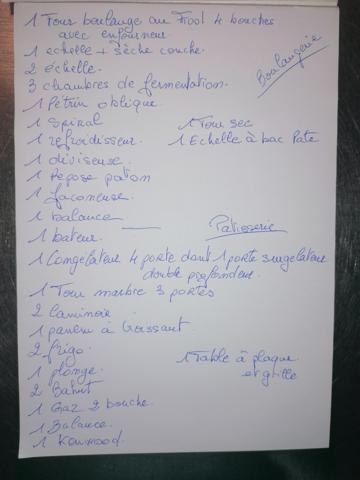 1 Four boulange au Fiool 4 bouches
avec enfourneur.
Boulangerie
1 echelle + sèche couche.
2 échelle.
3 chambres de fermentation.
1 Pétrin oblique.
1 Spiral
1 Tour sec
1 refroidisseur.
1 Echelle à bac Pate
1 diviseuse.
1 Repose paton
1 façoneuse.
1 balance
1 bateur.
Patisserie
1 Congélateur 4 porte dont 1 porte surgelateur
double profondeur.
1 Tour marbre 3 portes
2 laminoir
1 a Croissant
2 frigo.
1 Table à plaque
et grille
1 plonge.
2 Bahut
1 Gaz 2 bouche.
1 Balance.
1 Kenwood.